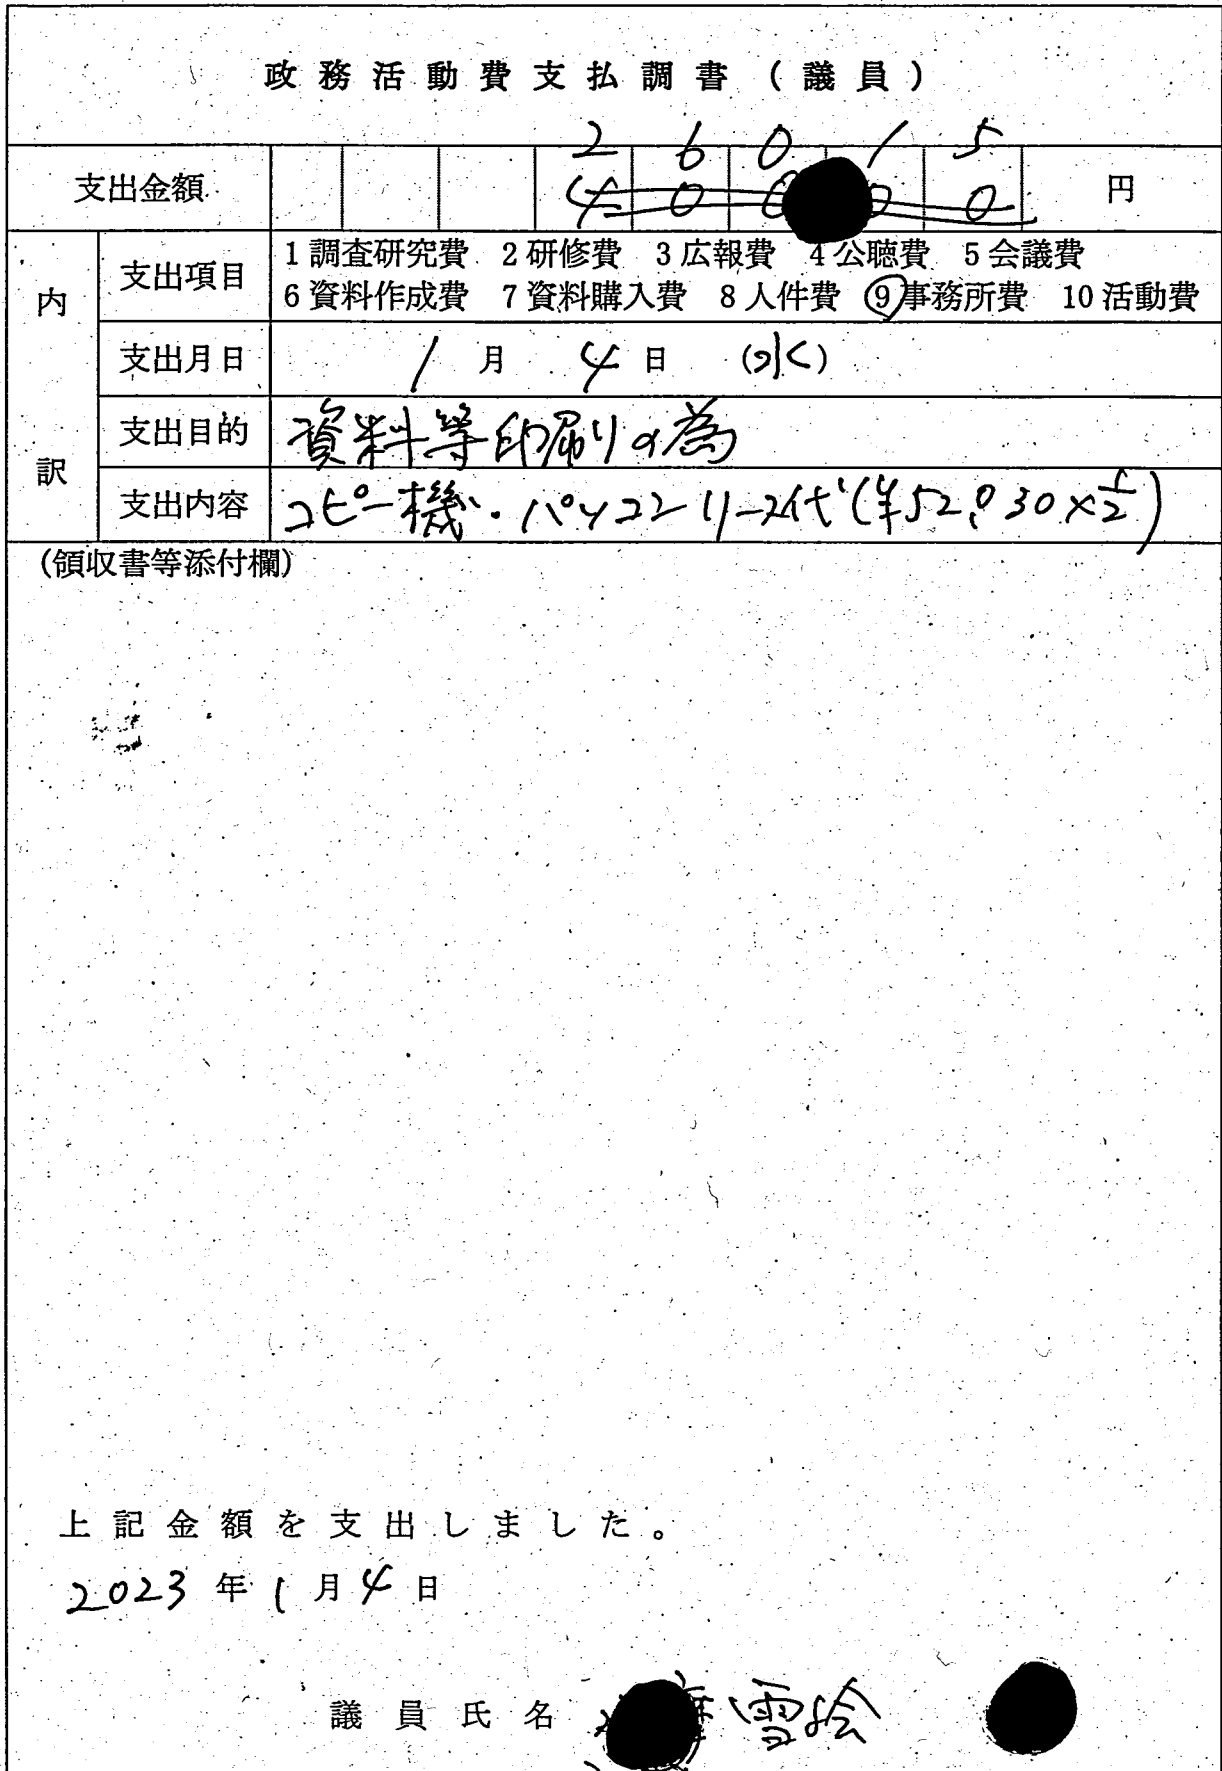 政務活動費支払調書(議員)
2 6 0 1 5
支出金額 4 0 0 0 円
内訳
支出項目 1調査研究費 2研修費 3広報費 4公聴費 5会議費
6資料作成費 7資料購入費 8人件費 ⑨事務所費 10活動費
支出月日 1月 4日 (水)
支出目的 資料等印刷の為
支出内容 コピー機・パソコンリース代(¥52,030×1/2)
(領収書等添付欄)
上記金額を支出しました。
2023年1月4日
議員氏名 雪絵